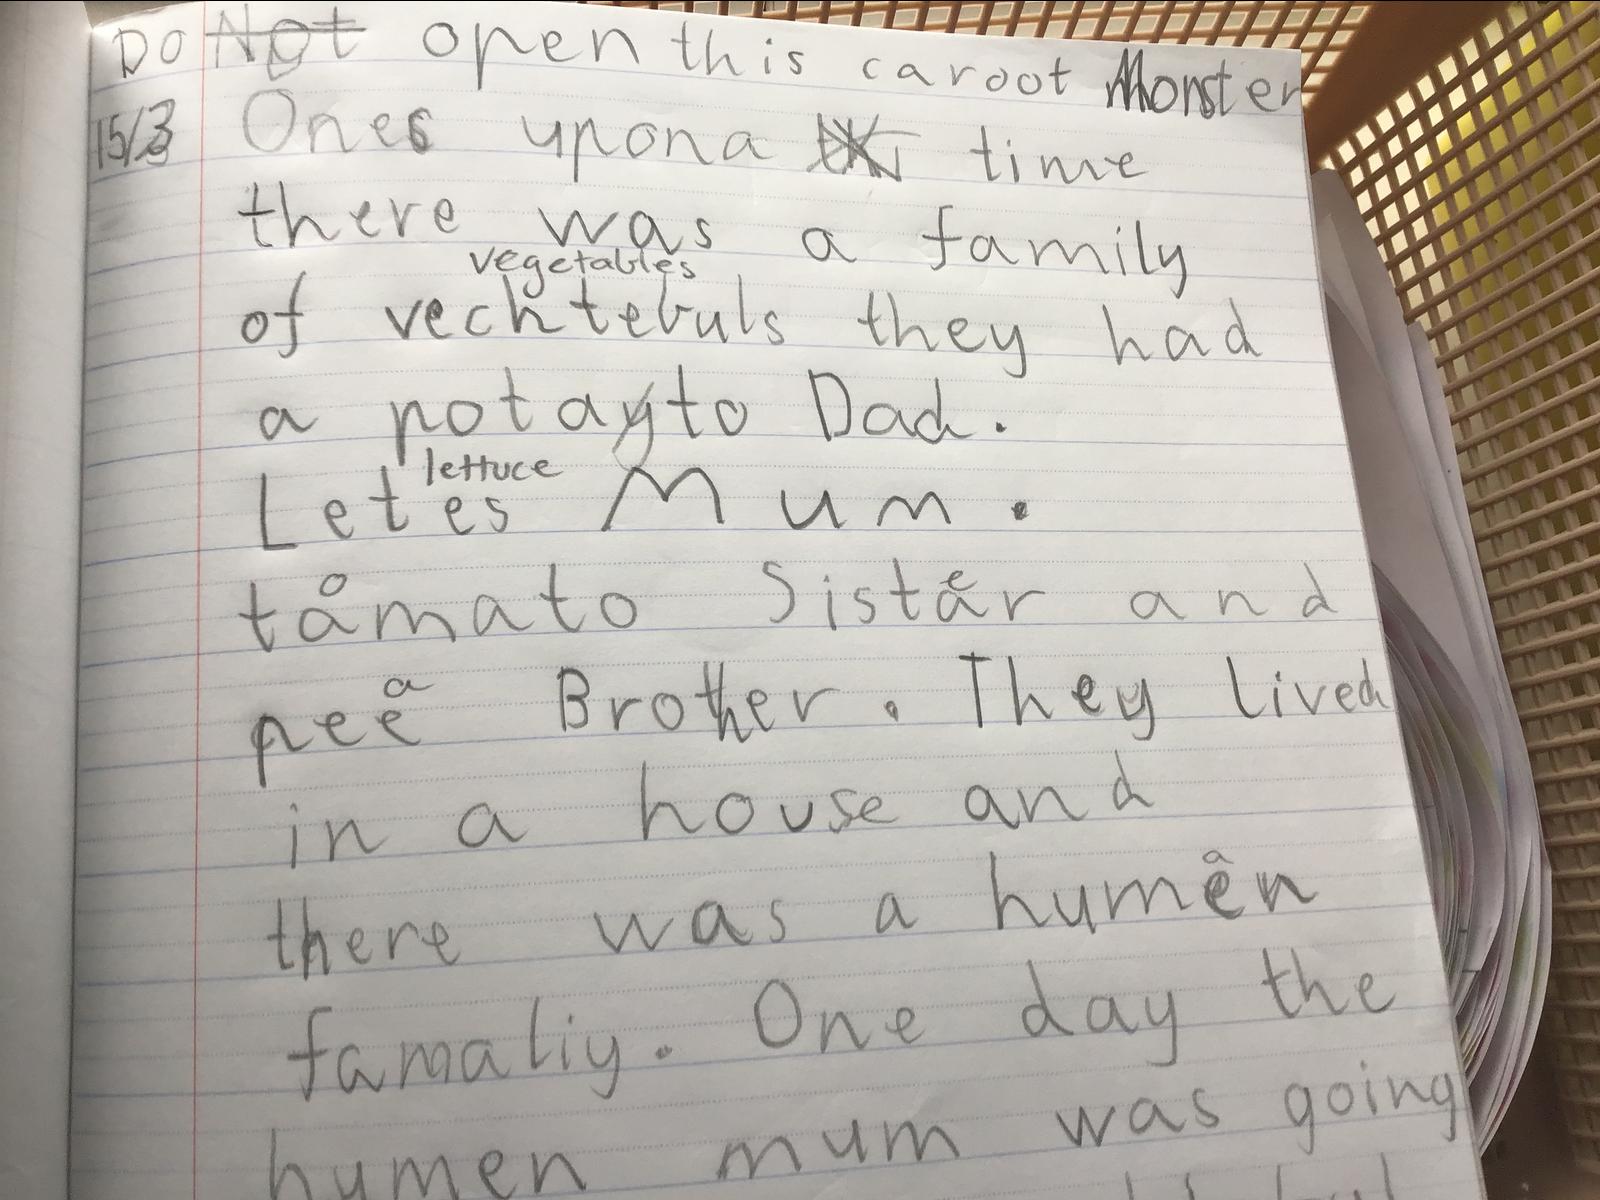 DO Not open this caroot Monster
15/3 Ones upona time
there was a family
vegetables
of vechtebuls they had
a potayto Dad.
lettuce
Letes Mum.
o e
tamato Sistar and
a
pee Brother. They lived
in a house and
a
there was a humen
famaliy. One day the
humen mum was going